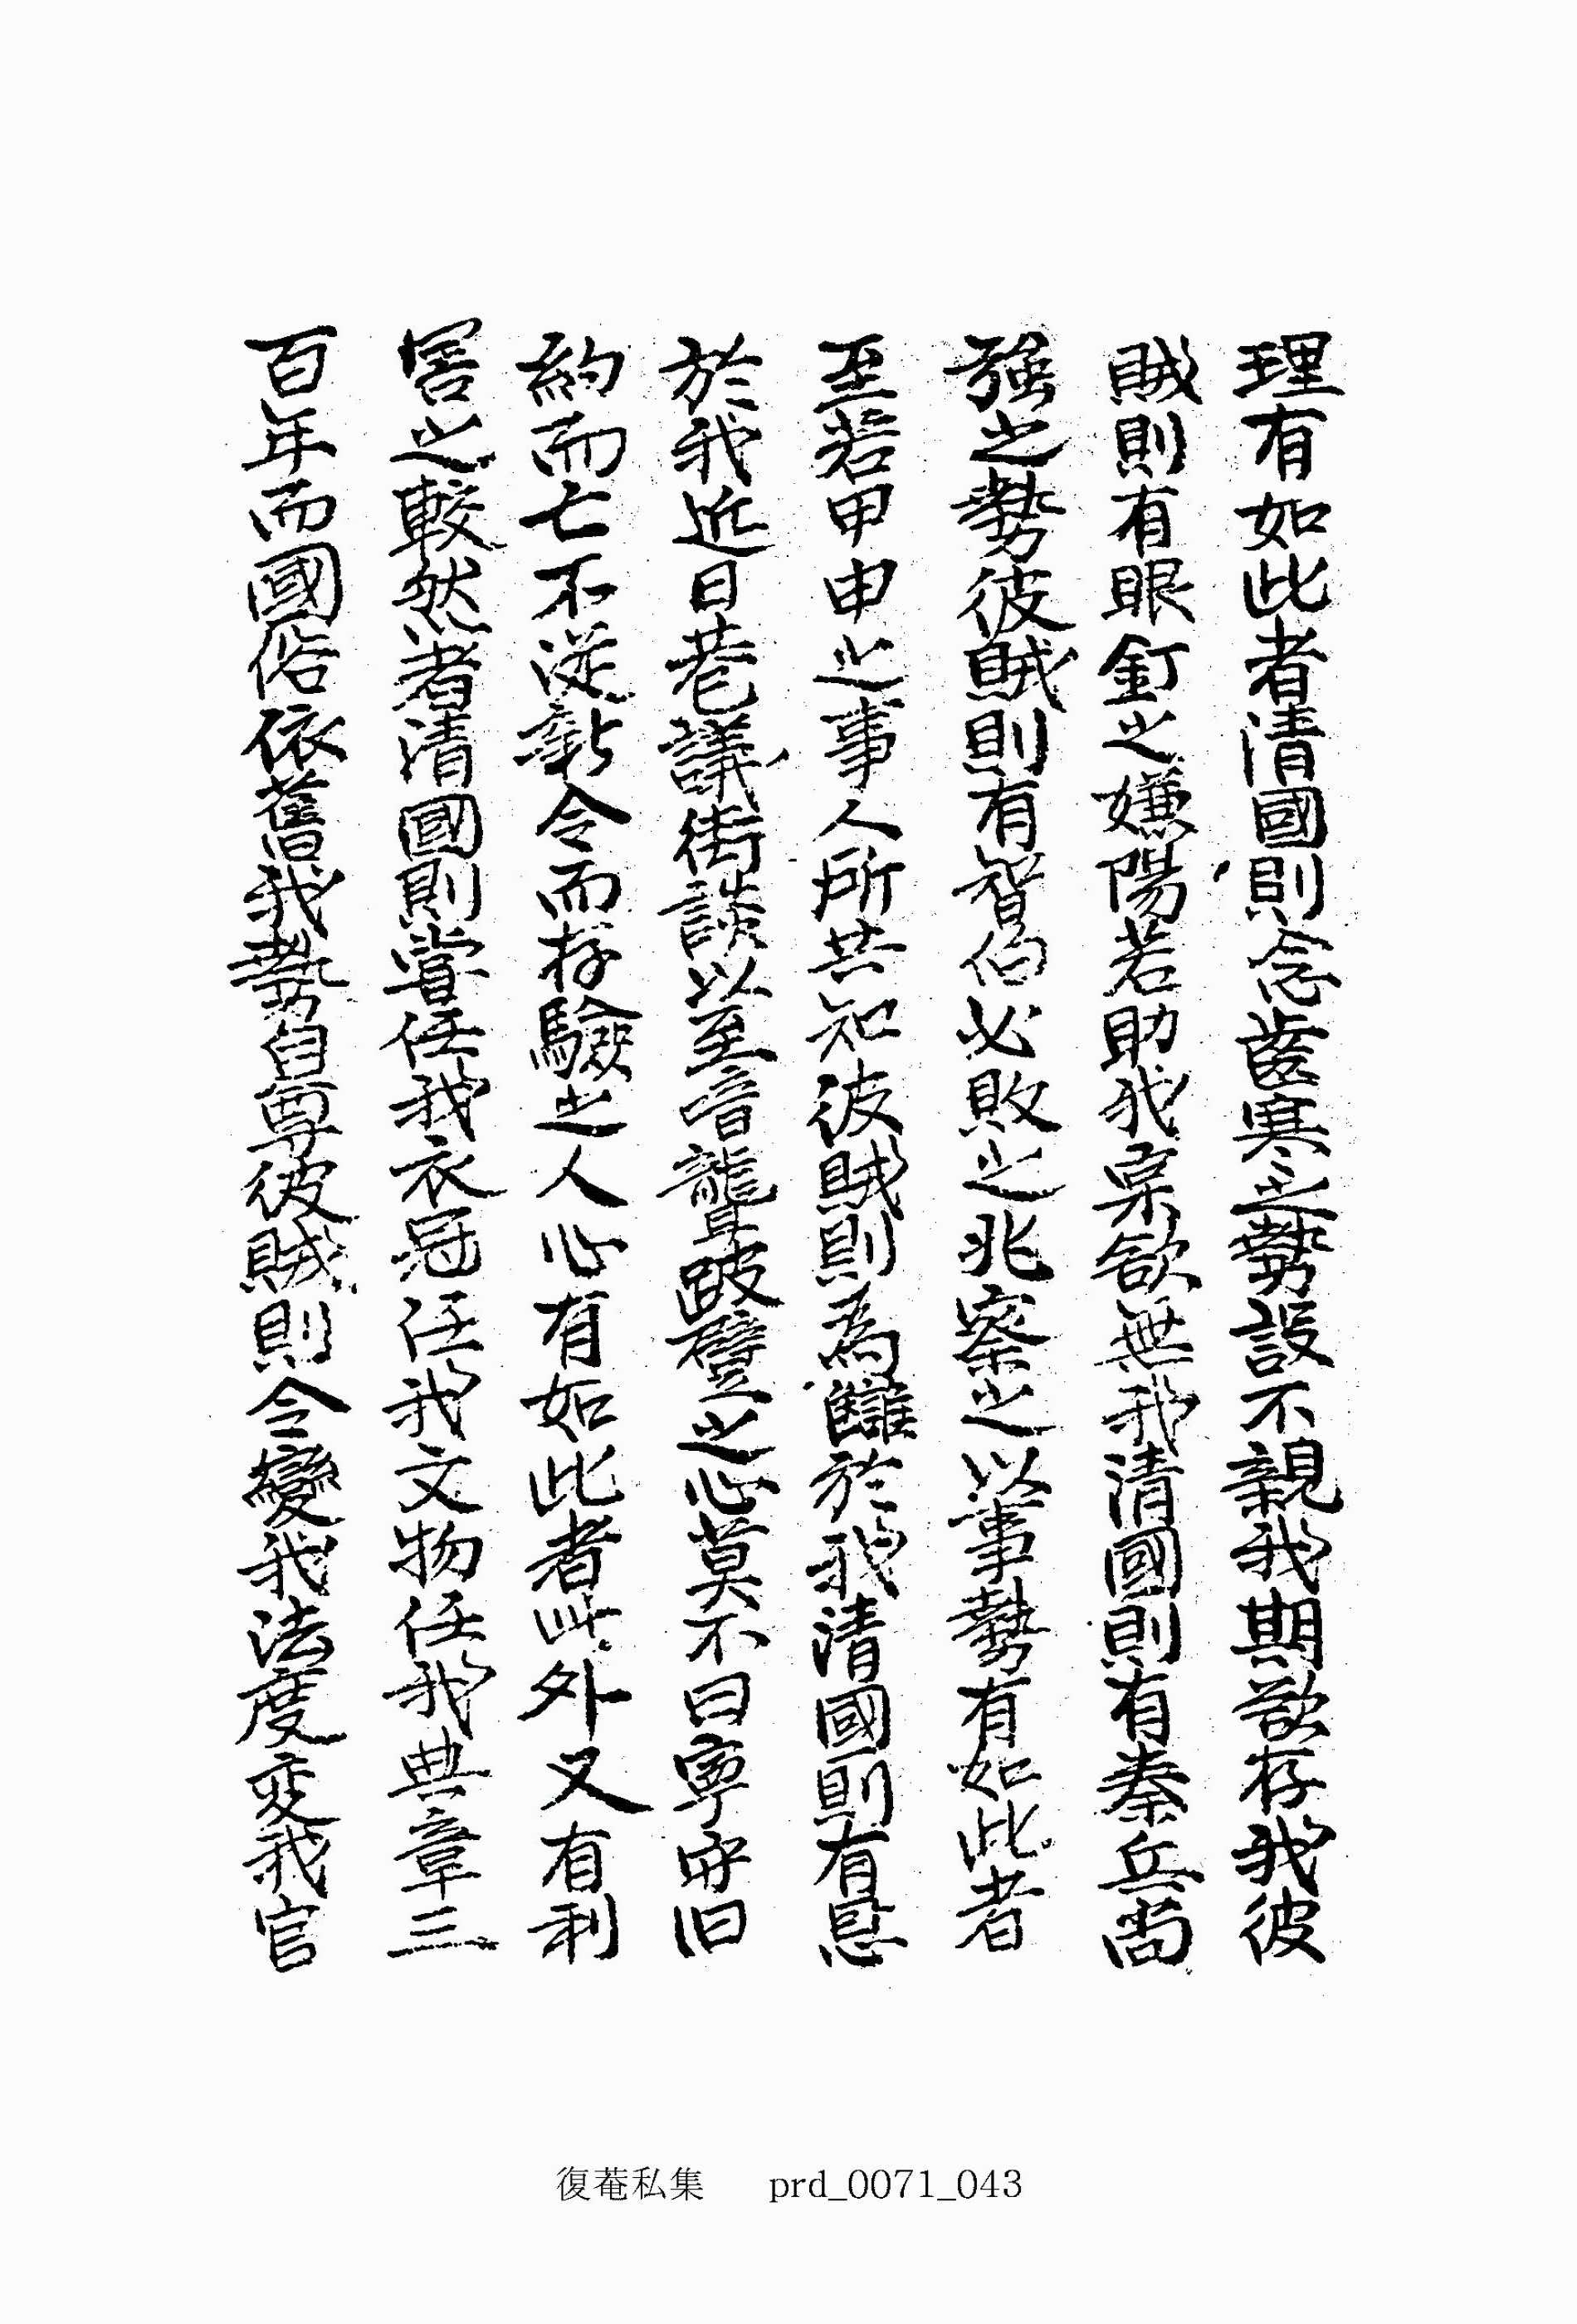 理有如此者清國則念齒寒之勢設不親我期欲存我彼
賊則有眼釘之嫌陽若助我杂欲無我清國則有秦兵尚
强之勢彼賊則有智伯必敗之兆察之以事勢有如此者
至若甲申之事人所共知彼賊則為讎於我清國則有恩
於我近日巷議街談以至喑聾跛躄之心莫不曰寧守旧
約而亡不從新令而存驗之人心有如此者此外又有利
害之較然者清國則嘗任我衣冠任我文物任我典章三
百年而國俗依舊我勢自尊彼賊則令變我法度变我官
復菴私集 prd_0071_043